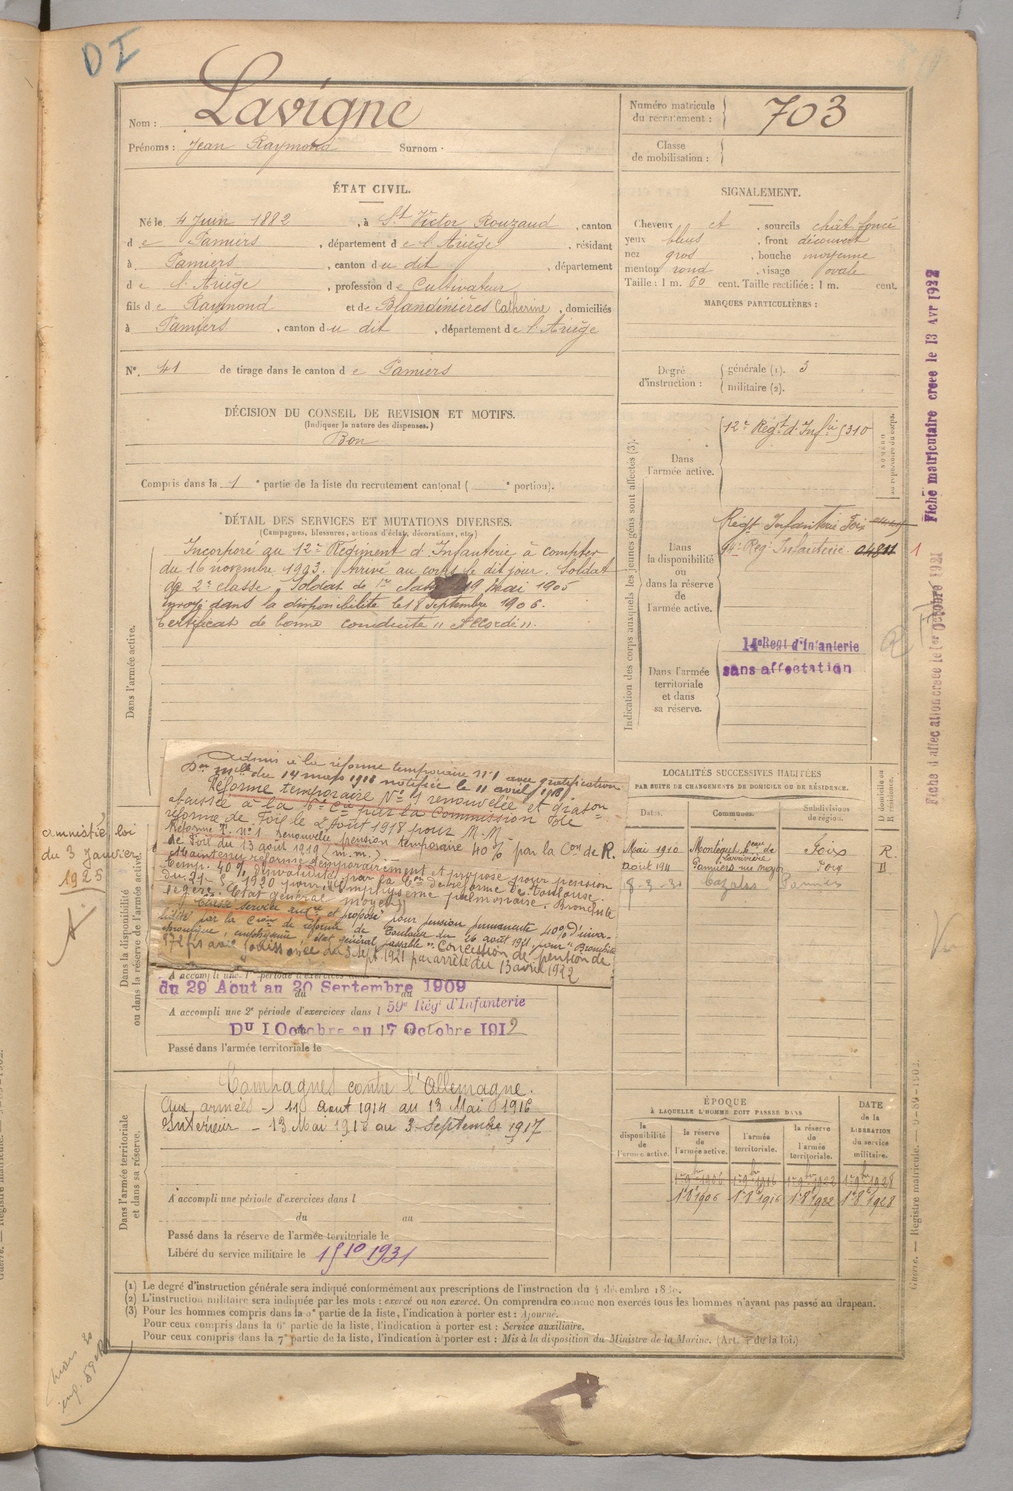 DI
Nom : Lavigne
Prénoms : Jean Raymond Surnom :
Numéro matricule du recrutement : 703
Classe de mobilisation :
ÉTAT CIVIL.
Né le 4 Juin 1882, à St Victor Rouzaud, canton
de Pamiers, département de l'Ariège, résidant
à Pamiers, canton du dit, département
de l'Ariège, profession de Cultivateur,
fils de Raymond et de Blandinières Catherine, domiciliés
à Pamiers, canton du dit, département de l'Ariège
N° 41 de tirage dans le canton de Pamiers
SIGNALEMENT.
Cheveux et, sourcils chât foncé
yeux bleus, front découvert
nez gros, bouche moyenne
menton rond, visage ovale
Taille : 1 m. 60 cent. Taille rectifiée : 1 m. cent.
MARQUES PARTICULIÈRES :
Degré d'instruction : générale (1). 3
militaire (2).
DÉCISION DU CONSEIL DE REVISION ET MOTIFS.
(Indiquer la nature des dispenses.)
Bon
Compris dans la 1e partie de la liste du recrutement cantonal ( e portion).
DÉTAIL DES SERVICES ET MUTATIONS DIVERSES.
(Campagnes, blessures, actions d'éclat, décorations, etc.)
Dans l'armée active.
Incorporé au 12e Régiment d'Infanterie à compter
du 16 novembre 1903. Arrivé au corps le dit jour. Soldat
de 2e classe, Soldat de 1re 19 mai 1905
envoyé dans la disponibilité le 18 Septembre 1906.
Certificat de bonne conduite "Accordé".
Indication des corps auxquels les jeunes gens sont affectés (3).
Dans l'armée active.
12e Régt d'Infie 5310
Dans la disponibilité ou dans la réserve de l'armée active.
Régt Infanterie Foix
Reg. Infanterie
Dans l'armée territoriale et dans sa réserve.
14e Regt d'infanterie
sans affectation
Fiche matriculaire créée le 13 Avr 1922
Fiche d'affectation créée le 1er Octobre 1921
Dans la disponibilité ou dans la réserve de l'armée active.
amnistié, loi
du 3 Janvier
1925
Admis à la réforme temporaire n°1 avec gratification
Don mlle du 14 mars 1918 notifiée le 11 avril 1918
Réforme temporaire N°1 renouvelée et
réforme de Foix le 2 Août 1918 pour
Réforme T. n°1 Renouvelée pension temporaire 40% par la Con de R.
de Foix du 13 août 1919 (m.m.)
Maintenu réforme temporairement et proposé pour pension
temp. 40% d'invalidité par la Con de réforme de Toulouse
du 21 8 1920 pour Emphysème pulmonaire. Bronchite
légère. Etat général moyen
proposé pour pension permanente 40% d'inva-
lidité par la Cion de réforme de Toulouse du 26 août 1921 pour "Bronchite
chronique, emphysème, état général passable". Concession de pension de
du 3 sept. 1921 par arrêté du 13 avril 1922
A accompli une 1re période d'exercices
du 29 Aout au 20 Septembre 1909
A accompli une 2e période d'exercices dans l 59e Rég d'Infanterie
Du 1 Octobre au 17 Octobre 1912
Passé dans l'armée territoriale le
LOCALITÉS SUCCESSIVES HABITÉES
PAR SUITE DE CHANGEMENTS DE DOMICILE OU DE RÉSIDENCE.
Dates. Communes. Subdivisions de région. D domicile ou R résidence.
Mai 1910 Foix R.
Août 1911 Pamiers Foix
Cazales Pamiers
Dans l'armée territoriale et dans sa réserve.
Campagnes contre l'Allemagne.
Aux armées - 11 Août 1914 au 13 Mai 1916
Intérieur - 13 Mai 1916 au 3 Septembre 1917
A accompli une période d'exercices dans l
du au
Passé dans la réserve de l'armée territoriale le
Libéré du service militaire le 15 10 1931
ÉPOQUE
À LAQUELLE L'HOMME DOIT PASSER DANS
la disponibilité de l'armée active. la réserve de l'armée active. l'armée territoriale. la réserve de l'armée territoriale. DATE de la LIBÉRATION du service militaire.
1er 8e 1906 1er 8e 1916 1er 8e 1922 1er 8e 1928
(1) Le degré d'instruction générale sera indiqué conformément aux prescriptions de l'instruction du 4 décembre
(2) L'instruction militaire sera indiquée par les mots : exercé ou non exercé. On comprendra comme non exercés tous les hommes n'ayant pas passé au drapeau.
(3) Pour les hommes compris dans la 5e partie de la liste, l'indication à porter est : Ajourné.
Pour ceux compris dans la 6e partie de la liste, l'indication à porter est : Service auxiliaire.
Pour ceux compris dans la 7e partie de la liste, l'indication à porter est : Mis à la disposition du Ministre de la Marine. (Art. 4 de la loi.)
Guerre. — Registre matricule.